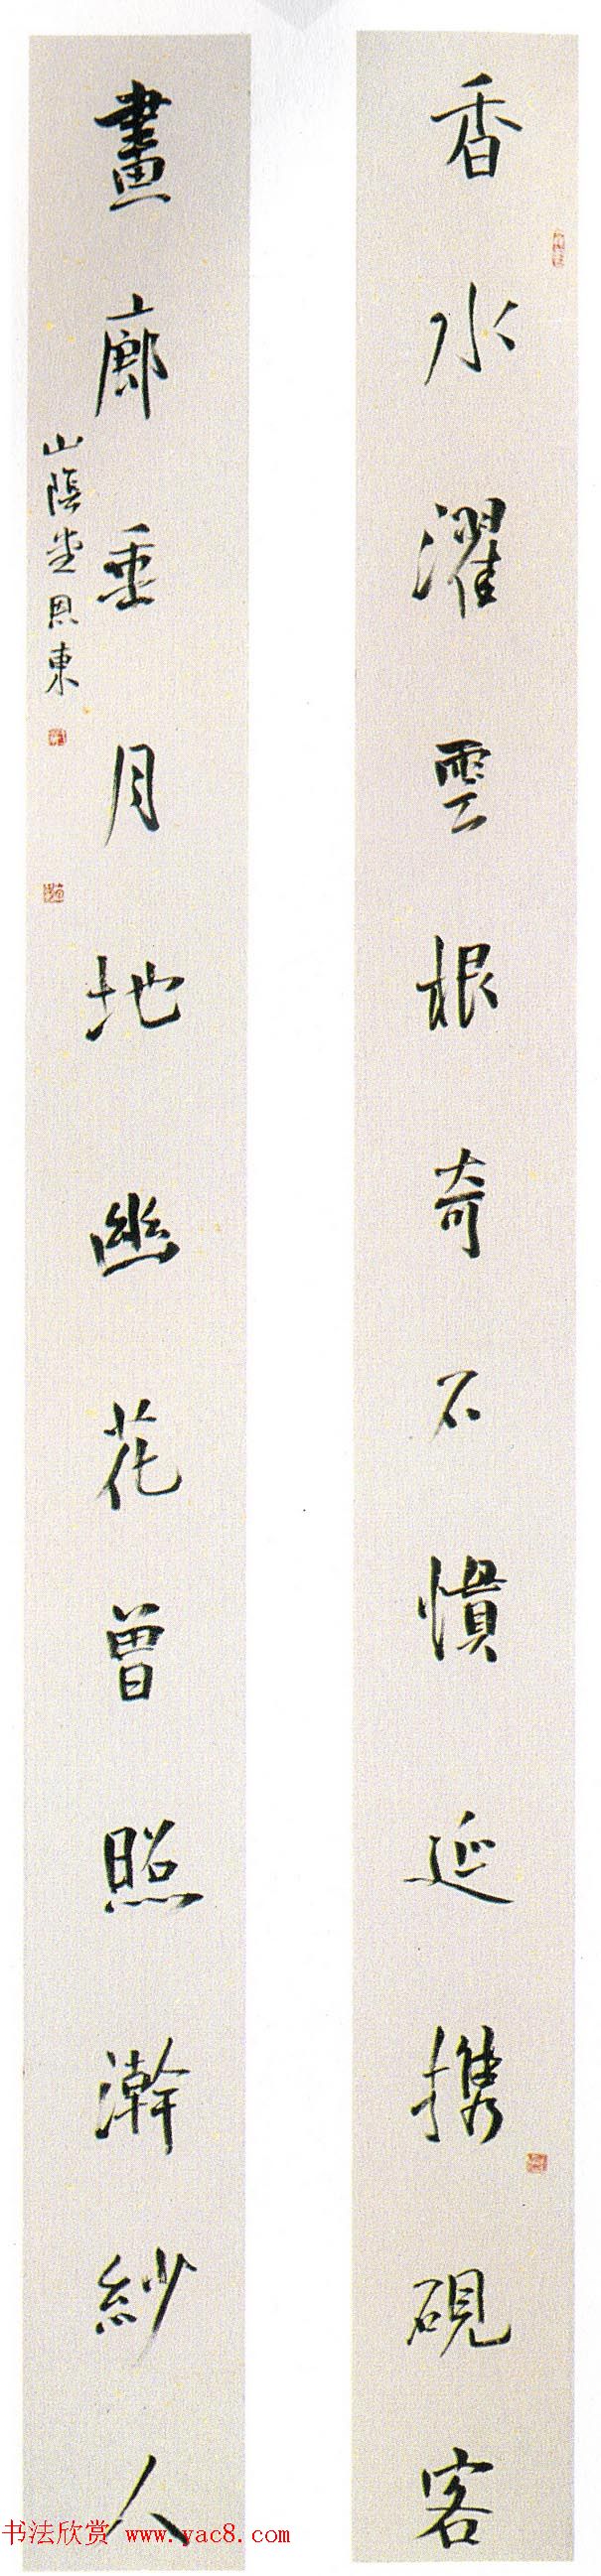 香水濯雲根奇石慣延攜硯客
畫廊垂月地幽花曾照澣紗人
山陰
恩東
书法欣赏 www.yac8.com